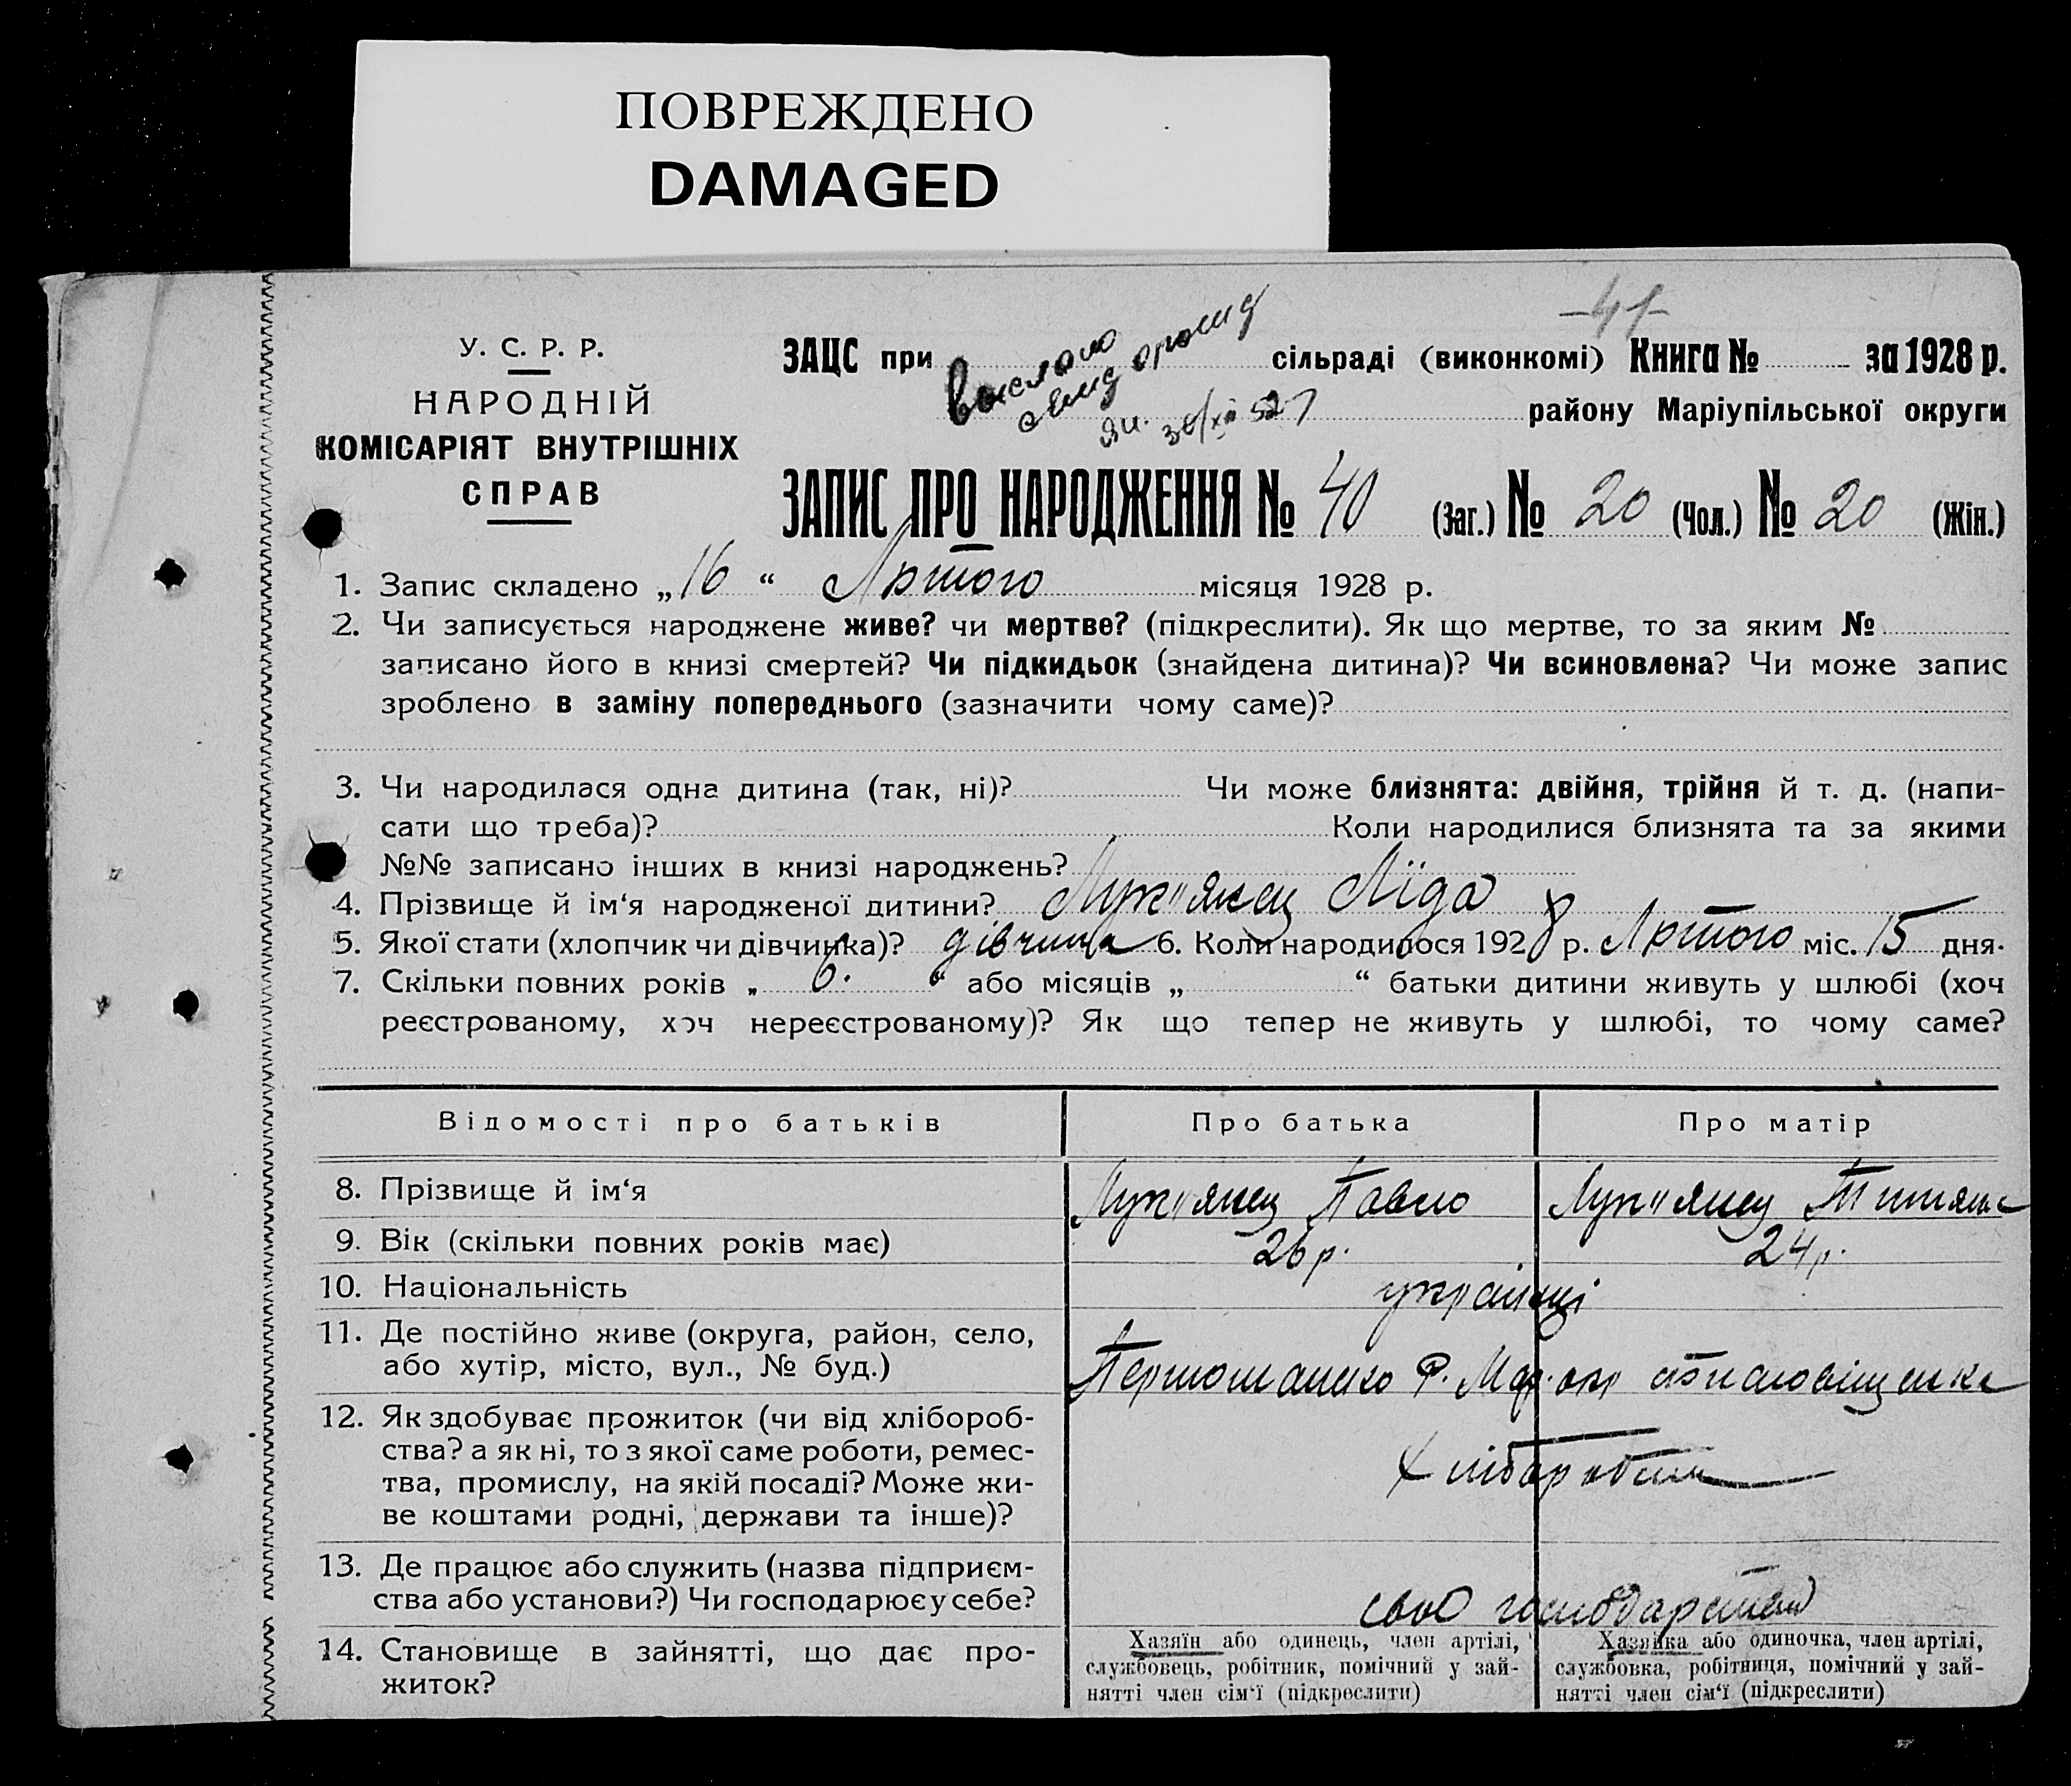 ПОВРЕЖДЕНО
DAMAGED
-41-
У. С. Р. Р.
НАРОДНІЙ
КОМІСАРІЯТ ВНУТРІШНІХ
СПРАВ
ЗАЦС при сільраді (виконкомі) Книга № за 1928 р.
району Маріупільської округи
выслано
52
ЗАПИС ПРО НАРОДЖЕННЯ № 40 (Заг.) № 20 (Чол.) № 20 (Жін.)
1. Запис складено „16“ Лютого місяця 1928 р.
2. Чи записується народжене живе? чи мертве? (підкреслити). Як що мертве, то за яким №
записано його в книзі смертей? Чи підкидьок (знайдена дитина)? Чи всиновлена? Чи може запис
зроблено в заміну попереднього (зазначити чому саме)?
3. Чи народилася одна дитина (так, ні)? Чи може близнята: двійня, трійня й т. д. (напи-
сати що треба)? Коли народилися близнята та за якими
№№ записано інших в книзі народжень?
4. Прізвище й ім‘я народженої дитини? Лук"янец Ліда
5. Якої стати (хлопчик чи дівчинка)? дівчина 6. Коли народилося 1928 р. Лютого міс. 15 дня.
7. Скільки повних років „ 6. “ або місяців „ “ батьки дитини живуть у шлюбі (хоч
реєстрованому, хоч нереєстрованому)? Як що тепер не живуть у шлюбі, то чому саме?
Відомості про батьків Про батька Про матір
8. Прізвище й ім‘я Лук"янец Павло Лук"янец Титяна
9. Вік (скільки повних років має) 26 р. 24 р.
10. Національність українці
11. Де постійно живе (округа, район, село,
або хутір, місто, вул., № буд.) Р. Мар. окр
12. Як здобуває прожиток (чи від хлібороб-
ства? а як ні, то з якої саме роботи, ремес-
тва, промислу, на якій посаді? Може жи-
ве коштами родні, держави та інше)?
13. Де працює або служить (назва підприєм-
ства або установи?) Чи господарює у себе?
14. Становище в зайнятті, що дає про-
житок?
Хазяїн або одинець, член артілі,
службовець, робітник, помічний у зай-
нятті член сім‘ї (підкреслити)
Хазяйка або одиночка, член артілі,
службовка, робітниця, помічний у зай-
нятті член сім‘ї (підкреслити)